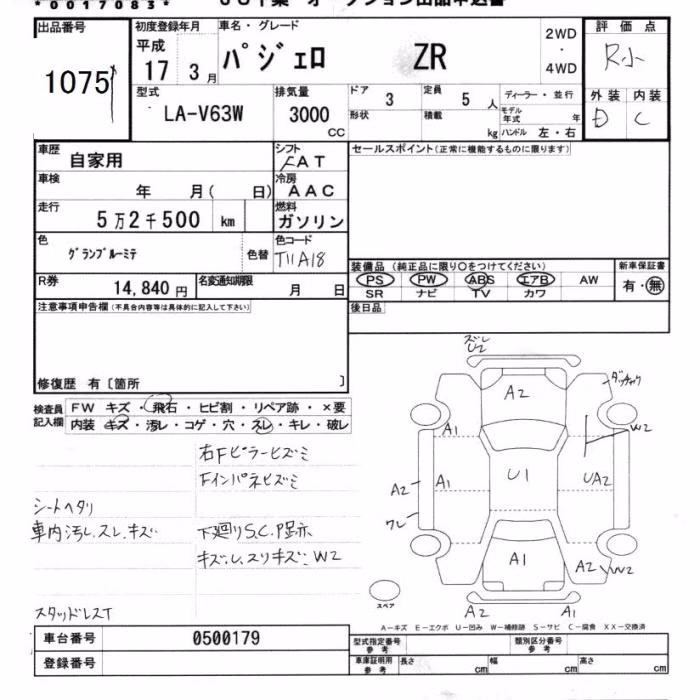 *0017083*
出品番号
1075
初度登録年月
平成
17 3月
車名・グレード
パジェロ ZR
2WD
・
4WD
評価点
R小
外装 内装
D C
型式
LA-V63W
排気量
3000
CC
ドア
3
定員
5 人
ディーラー・並行
形状
積載
kg
モデル年式 年
ハンドル 左・右
車歴
自家用
シフト
FAT
セールスポイント(正常に機能するものに限ります)
車検
年 月( 日)
冷房
AAC
走行
5万2千500 km
燃料
ガソリン
色
グランブルーミテ
色替
色コード
T11A18
装備品 (純正品に限り○をつけてください)
PS PW ABS エアB AW
SR ナビ TV カワ
新車保証書
有・無
R券
14,840 円
名変通知期限
月 日
後日品
注意事項申告欄(不具合内容等は具体的に記入して下さい)
修復歴 有〔箇所 〕
検査員
記入欄
FW キズ・飛石・ヒビ割・リペア跡・×要
内装 キズ・汚レ・コゲ・穴・スレ・キレ・破レ
右Fピラーヒズミ
Fインパネヒズミ
シートヘタリ
車内汚レ.スレ.キズ
下廻りS.C.P跡
キズ.レ.スリキズ.W2
スタッドレスT
ズレ
U2
A2
A1
W2
A2
A1
U1
UA2
ワレ
A1
A2
W2
スペア
A2
A1
A-キズ E-エクボ U-凹み W-補修跡 S-サビ C-腐食 XX-交換済
車台番号
0500179
登録番号
型式指定番号
参考
類別区分番号
参考
車庫証明用
参考
長さ cm
幅 cm
高さ cm